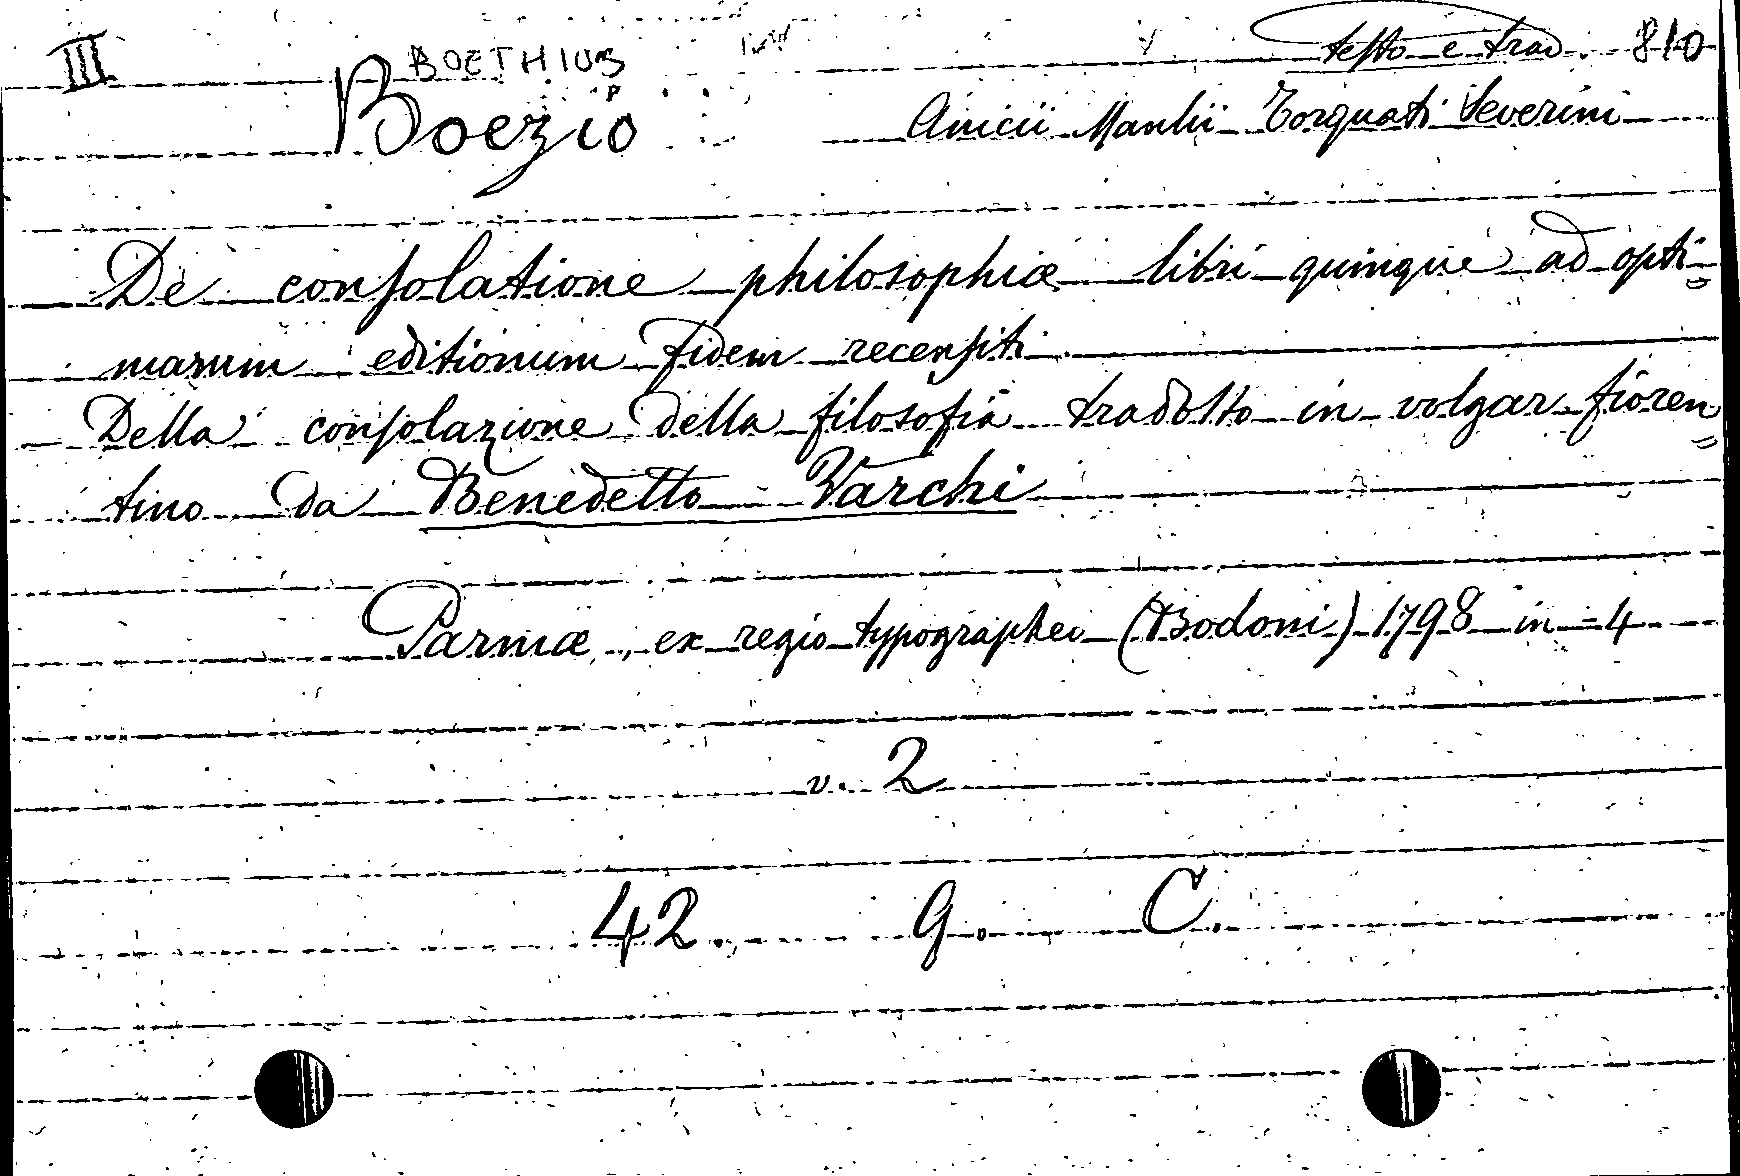 III BOETHIUS testo e trad. 810
Boezio Anicii Manlii Torquati Severini
De consolatione philosophiæ libri quinque ad opti=
marum editionum fidem recensiti.
Della consolazione della filosofia tradotto in volgar fioren=
tino da Benedetto Varchi
Parmæ, ex regio typographeo (Bodoni) 1798 in-4
v. 2
42. G. C.